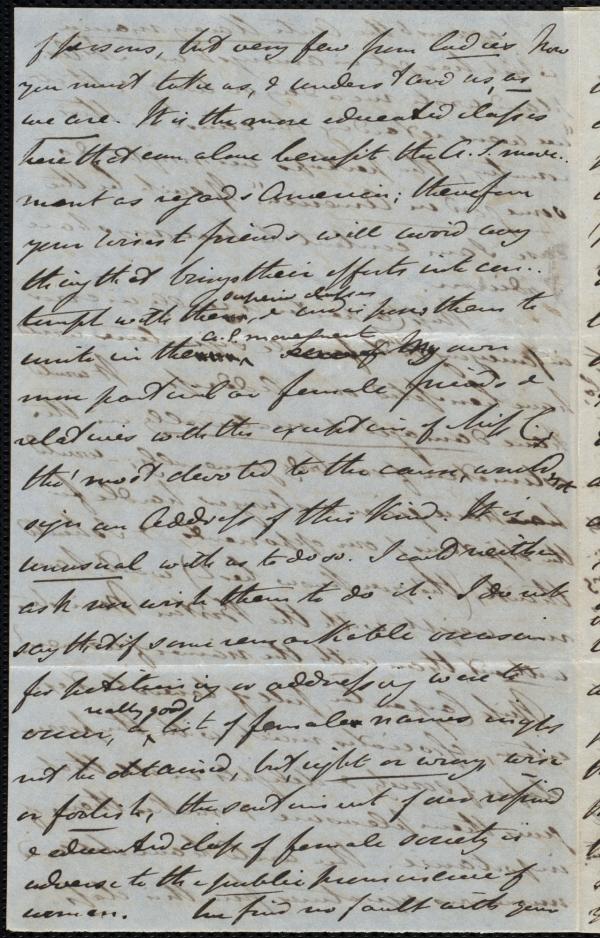 of persons, but very few from ladies. Now
you must take as, & understand us, as
we are. It is the more educated classes
here that can alone benefit the A.S. move-
ment as regards America; therefore
your wisest friends will avoid any
thing that brings their efforts into con-
superior classes
tempt with & indisposes them to
A.S. movement
unite in the My own
more particular female friends &
relatives with the exception of Miss C.
tho' most devoted to the cause, would not
sign an Address of this kind. It is
unusual with us to do so. I could neither
ask nor wish them to do it. I do not
say that if some remarkable occasion
for petitioning or addressing were to
really good
occur, a list of female names might
not be obtained, but, right or wrong, wise
or foolish, the sentiment of our refined
& educated class of female society is
adverse to the public prominence of
women. We find no fault with your